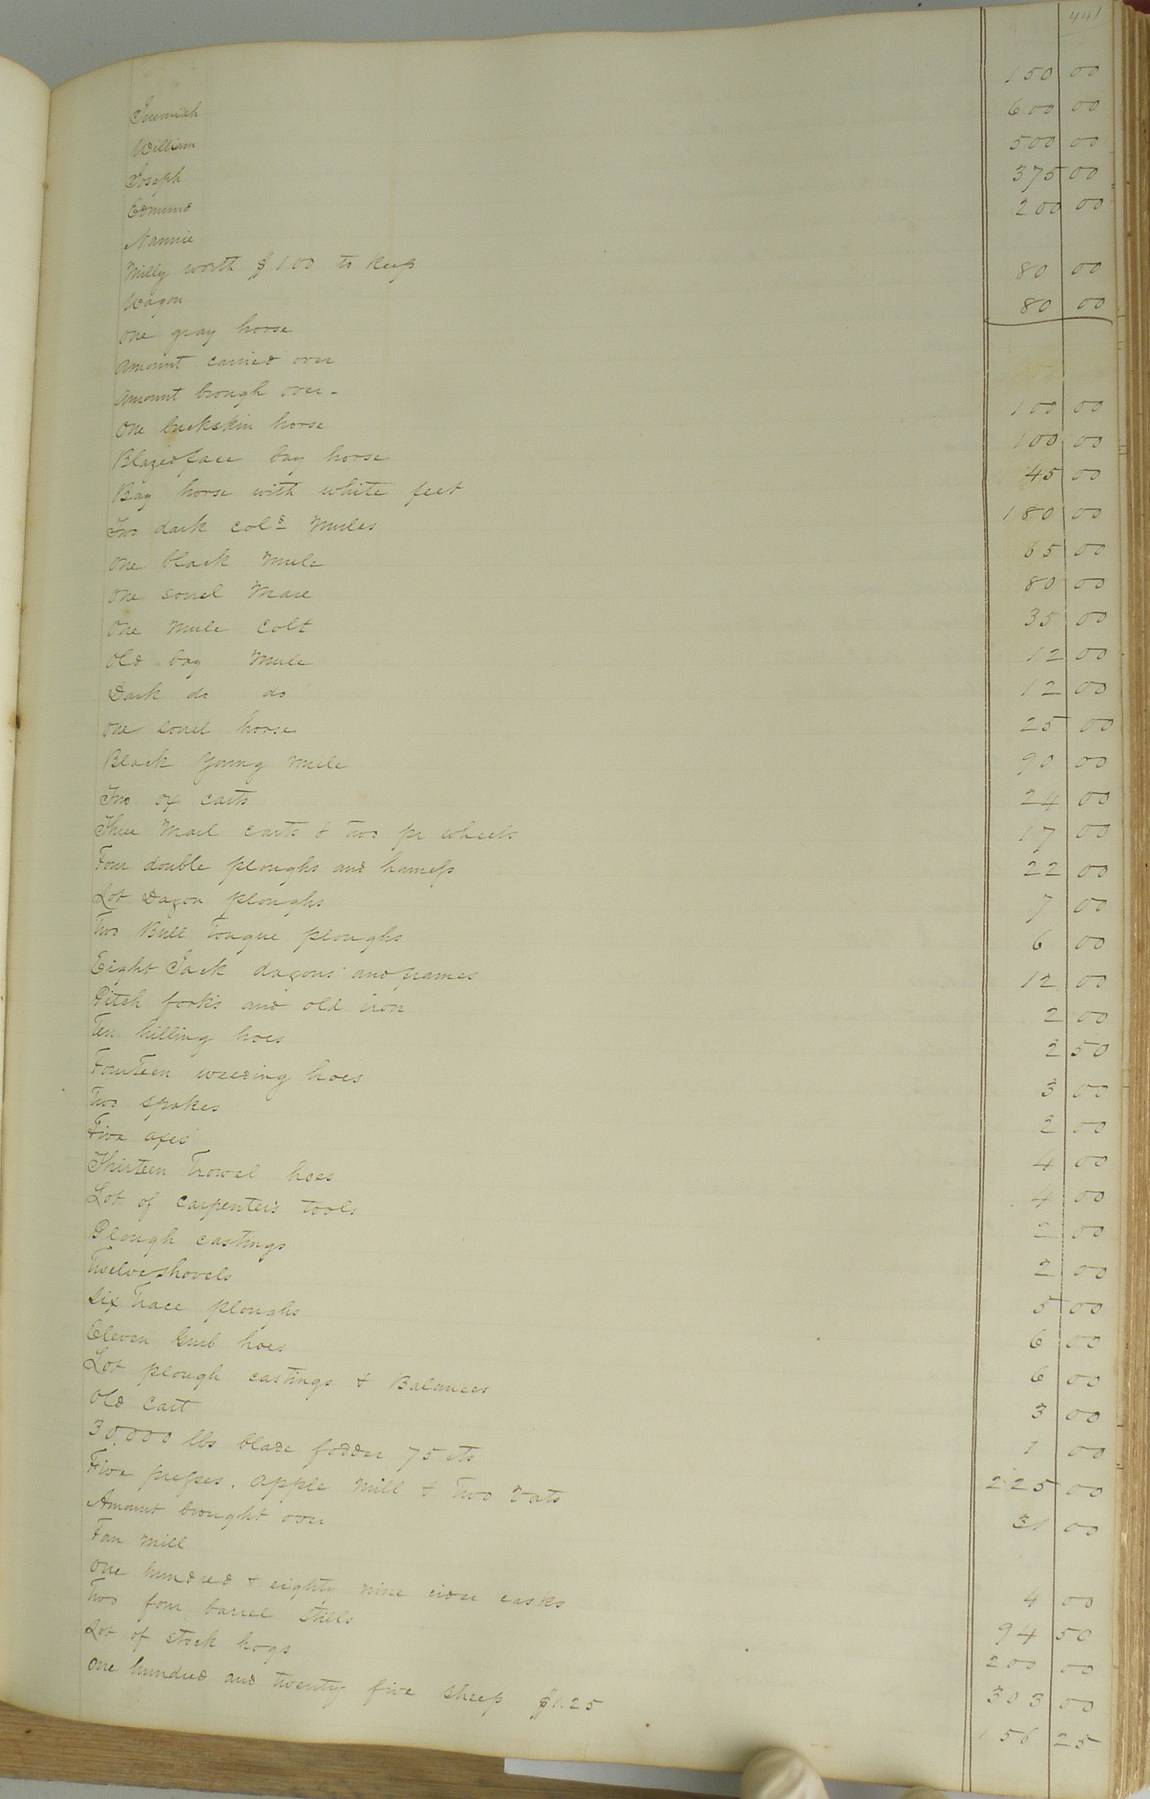 441
Jeremiah 150 00
William 600 00
Joseph 500 00
Edmund 375 00
Nannie 200 00
Milly worth $100 to keep
Wagon 80 00
One gray horse 80 00
Amount carried over
Amount brough over -
One buckskin horse 100 00
Blazed face bay horse 100 00
Bay horse with white feet 45 00
Two dark cold mules 180 00
One black mule 65 00
One sorrel mare 80 00
One mule colt 35 00
Old bay mule 12 00
Dark do do 12 00
One sorrel horse 25 00
Black young mule 90 00
Two ox carts 24 00
Three mail carts & two pr wheels 17 00
Four double ploughs and hamess 22 00
Lot Dagon ploughs 7 00
Two Bull Tongue ploughs 6 00
Eight Jack dagons and frames 12 00
Pitch forks and old iron 2 00
Ten hilling hoes 2 50
Fourteen weeding hoes 3 00
Two spokes 2 00
Five axes 4 00
Thirteen Trowel hoes 4 00
Lot of carpenters tools 2 00
Plough castings 2 00
Twelve shovels 5 00
Six Trace ploughs 6 00
Eleven Grub hoes 6 00
Lot plough castings & Balances 3 00
Old cart 1 00
30,000 lbs blade fodder 75 cts 225 00
Five presses, apple mill & Two vats 31 00
Amount brought over
Fan mill 4 00
One hundred & eighty nine cider casks 94 50
Two four barrel stills 200 00
Lot of stock hogs 303 00
One hundred and twenty five sheep $1.25 156 25